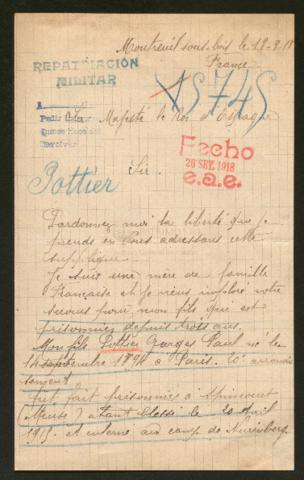 Montreuil sous bois le 12.9.18
France
REPATRIACION
MILITAR
15745
A
Pedir
Majesté le Roi d'Espagne
Fecho
26 SET. 1918
e.a.e.
Pottier
Sir.
Pardonnez moi la liberté que je
prends en Vous adressant cette
supplique.
Je suis une mère de famille
Française et je viens implorer votre
secours pour mon fils qui est
prisonnier depuis trois ans.
Mon fils Pottier Georges Paul né le
14 septembre 1894 à Paris. 20e arrondis
sement
fut fait prisonnier à Spincourt
(Meuse) étant blessé le 20 Avril
1915. et interné au camp de Nuremberg.